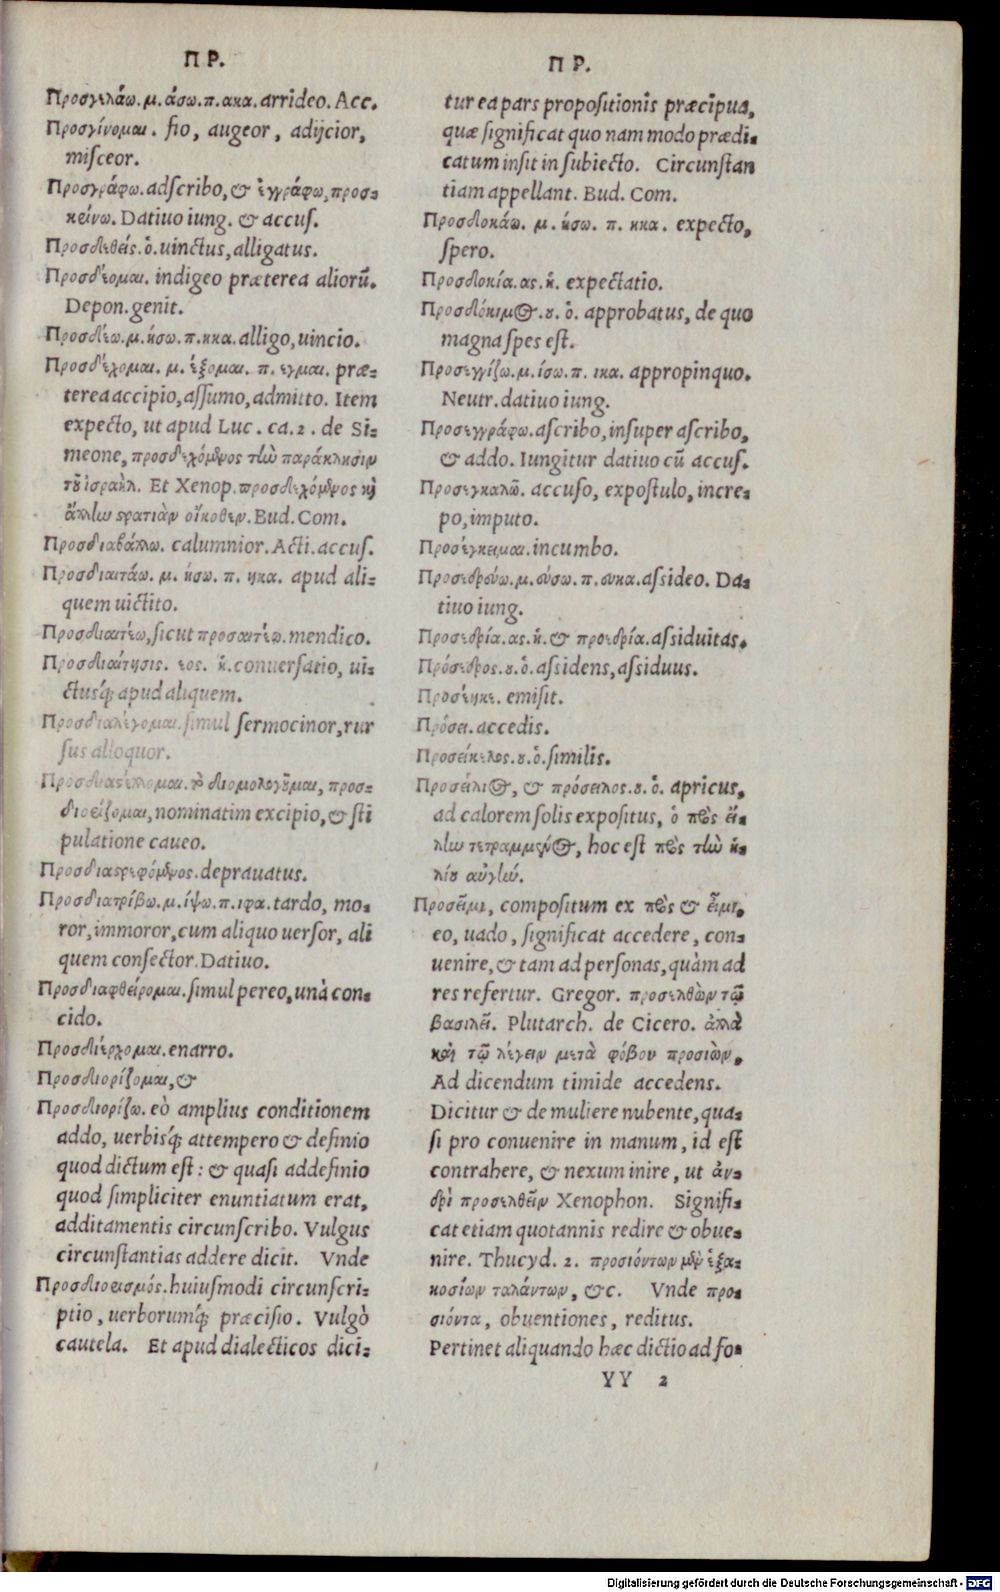 ΠΡ.
Προσγελάω. μ. άσω. π. ακα. arrideo. Acc.
Προσγίνομαι. fio, augeor, adijcior,
misceor.
Προσγράφω. adscribo, & ἐγγράφω, προσ-
κείνω. Datiuo iung. & accus.
Προσδεθείς. ὁ. uinctus, alligatus.
Προσδέομαι. indigeo præterea aliorũ.
Depon. genit.
Προσδέω. μ. ήσω. π. ηκα. alligo, uincio.
Προσδέχομαι. μ. έξομαι. π. εγμαι. præ-
terea accipio, assumo, admitto. Item
expecto, ut apud Luc. ca. 2. de Si-
meone, προσδεχόμενος τὴν παράκλησιν
τοῦ ἰσραὴλ. Et Xenop. προσδεχόμενος καὶ
ἄλλην στρατιὰν οἴκοθεν. Bud. Com.
Προσδιαβάλλω. calumnior. Acti. accus.
Προσδιαιτάω. μ. ήσω. π. ηκα. apud ali-
quem uictito.
Προσδιαιτέω, sicut προσαιτέω. mendico.
Προσδιαίτησις. εος. ἡ. conuersatio, ui-
ctusq́; apud aliquem.
Προσδιαλέγομαι. simul sermocinor, rur
sus alloquor.
Προσδιαστέλλομαι. τὸ διομολογοῦμαι, προσ-
διορίζομαι, nominatim excipio, & sti
pulatione caueo.
Προσδιαστρεφόμενος. deprauatus.
Προσδιατρίβω. μ. ίψω. π. ιφα. tardo, mo-
ror, immoror, cum aliquo uersor, ali
quem consector. Datiuo.
Προσδιαφθείρομαι. simul pereo, unà con-
cido.
Προσδιέρχομαι. enarro.
Προσδιορίζομαι, &
Προσδιορίζω. eò amplius conditionem
addo, uerbisq́; attempero & definio
quod dictum est: & quasi addefinio
quod simpliciter enuntiatum erat,
additamentis circunscribo. Vulgus
circunstantias addere dicit. Vnde
Προσδιορισμός. huiusmodi circunscri-
ptio, uerborumq́; præcisio. Vulgò
cautela. Et apud dialecticos dici-
ΠΡ.
tur ea pars propositionis præcipua,
quæ significat quo nam modo prædi-
catum insit in subiecto. Circunstan
tiam appellant. Bud. Com.
Προσδοκάω. μ. ήσω. π. ηκα. expecto,
spero.
Προσδοκία. ας. ἡ. expectatio.
Προσδόκιμος. ου. ὁ. approbatus, de quo
magna spes est.
Προσεγγίζω. μ. ίσω. π. ικα. appropinquo.
Neutr. datiuo iung.
Προσεγγράφω. ascribo, insuper ascribo,
& addo. Iungitur datiuo cũ accus.
Προσεγκαλῶ. accuso, expostulo, incre-
po, imputo.
Προσέγκειμαι. incumbo.
Προσεδρεύω. μ. εύσω. π. ευκα. assideo. Da-
tiuo iung.
Προσεδρία. ας. ἡ. & προεδρία. assiduitas.
Πρόσεδρος. ου. ὁ. assidens, assiduus.
Προσέηκε. emisit.
Πρόσει. accedis.
Προσείκελος. ου. ὁ. similis.
Προσείλιος, & πρόσειλος. ου. ὁ. apricus,
ad calorem solis expositus, ὁ πρὸς εἵ-
λην τετραμμένος, hoc est πρὸς τὴν ἡ-
λίου αὐγήν.
Προσεῖμι, compositum ex πρὸς & εἶμι,
eo, uado, significat accedere, con-
uenire, & tam ad personas, quàm ad
res refertur. Gregor. προσελθὼν τῷ
βασιλεῖ. Plutarch. de Cicero. ἀλλὰ
καὶ τῷ λέγειν μετὰ φόβου προσιὼν,
Ad dicendum timide accedens.
Dicitur & de muliere nubente, qua-
si pro conuenire in manum, id est
contrahere, & nexum inire, ut ἀν-
δρὶ προσελθεῖν Xenophon. Signifi-
cat etiam quotannis redire & obue-
nire. Thucyd. 2. προσιόντων μὲν ἑξα-
κοσίων ταλάντων, &c. Vnde προ-
σιόντα, obuentiones, reditus.
Pertinet aliquando hæc dictio ad fo-
YY 2
Digitalisierung gefördert durch die Deutsche Forschungsgemeinschaft - DFG